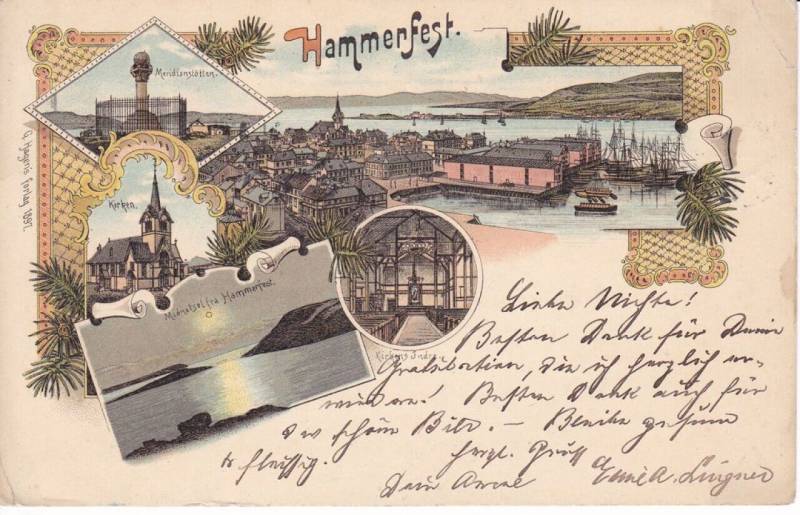 Hammerfest.
Meridianstötten.
G. Hagen's Forlag 1897.
Kirken.
Midnatsol fra Hammerfest.
Kirkens Indre
Liebe Nichte!
Besten Dank für Deine
Gratulation, die ich herzlich er-
widere! Besten Dank auch für
das schöne Bild. – Bleibe gesund
& fleissig. herzl. Gruß
Dein